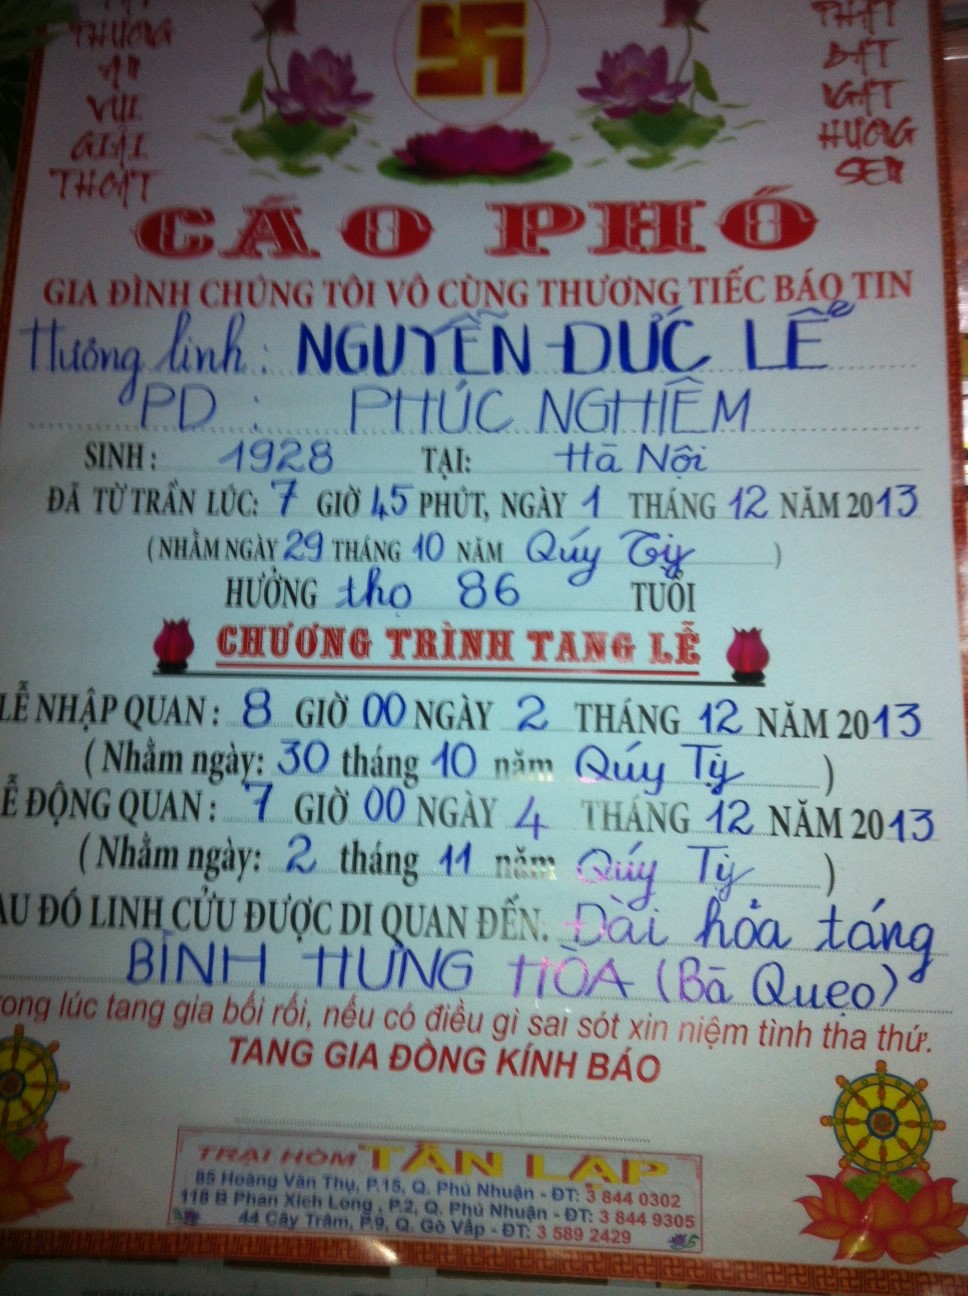 THƯƠNG
AN
VUI
GIẢI
THOÁT
PHẬT
BÁT
NGÁT
HƯƠNG
SEN
CÁO PHÓ
GIA ĐÌNH CHÚNG TÔI VÔ CÙNG THƯƠNG TIẾC BÁO TIN
Hương linh: NGUYỄN ĐỨC LỄ
PD : PHÚC NGHIÊM
SINH: 1928 TẠI: Hà Nội
ĐÃ TỪ TRẦN LÚC: 7 GIỜ 45 PHÚT, NGÀY 1 THÁNG 12 NĂM 2013
(NHẰM NGÀY 29 THÁNG 10 NĂM Qúy Tỵ )
HƯỞNG thọ 86 TUỔI
CHƯƠNG TRÌNH TANG LỄ
LỄ NHẬP QUAN: 8 GIỜ 00 NGÀY 2 THÁNG 12 NĂM 2013
(Nhằm ngày: 30 tháng 10 năm Qúy Tỵ )
Ễ ĐỘNG QUAN: 7 GIỜ 00 NGÀY 4 THÁNG 12 NĂM 2013
(Nhằm ngày: 2 tháng 11 năm Qúy Tỵ )
AU ĐÓ LINH CỬU ĐƯỢC DI QUAN ĐẾN: Đài hỏa táng
BÌNH HƯNG HÒA (Bà Quẹo)
rong lúc tang gia bối rối, nếu có điều gì sai sót xin niệm tình tha thứ.
TANG GIA ĐỒNG KÍNH BÁO
TRẠI HÒM TÂN LẬP
85 Hoàng Văn Thụ, P.15, Q. Phú Nhuận - ĐT: 3 844 0302
118 B Phan Xích Long, P.2, Q. Phú Nhuận - ĐT: 3 844 9305
44 Cây Trâm, P.9, Q. Gò Vấp - ĐT: 3 589 2429